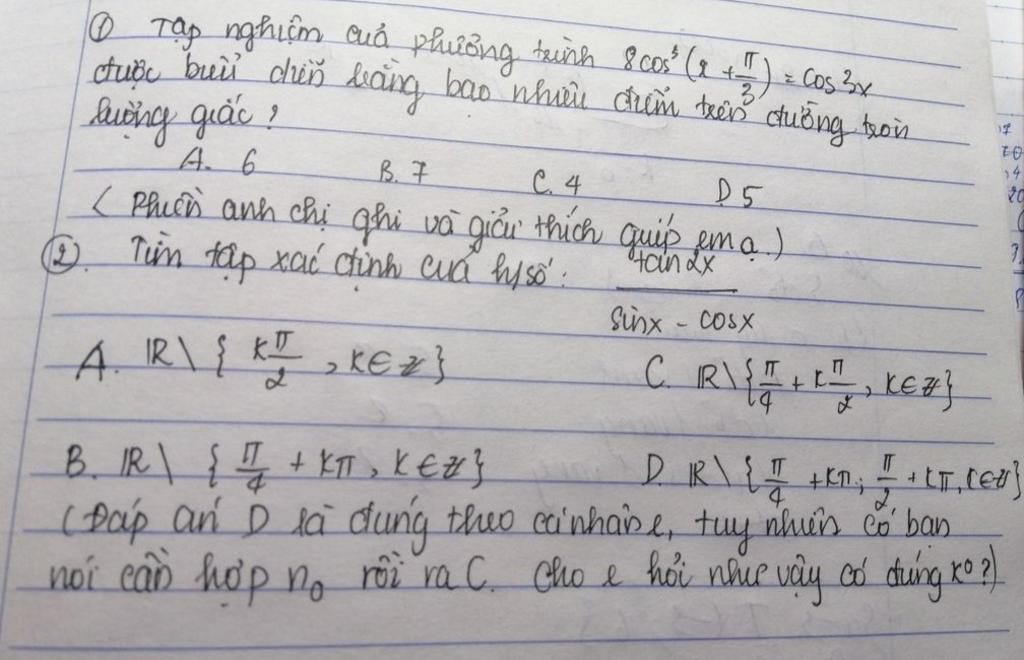 ① Tập nghiệm của phương trình 8cos³(x + π/3) = cos3x
được biểu diễn bằng bao nhiêu điểm trên đường tròn
lượng giác?
A. 6 B. 7 C. 4 D 5
(Phiền anh chị ghi và giải thích giúp em ạ.)
②. Tìm tập xác định của h/số: tan2x / sinx - cosx
A. ℝ \ { kπ/2, k∈ℤ } C. ℝ\{π/4 + kπ/2, k∈ℤ}
B. ℝ \ { π/4 + kπ, k∈ℤ} D. ℝ\{π/4 + kπ; π/2 + kπ, k∈ℤ}
(Đáp án D là đúng theo cá nhân e, tuy nhiên có bạn
nói cần hợp n₀ rồi ra C. Cho e hỏi như vậy có đúng k⁰?)